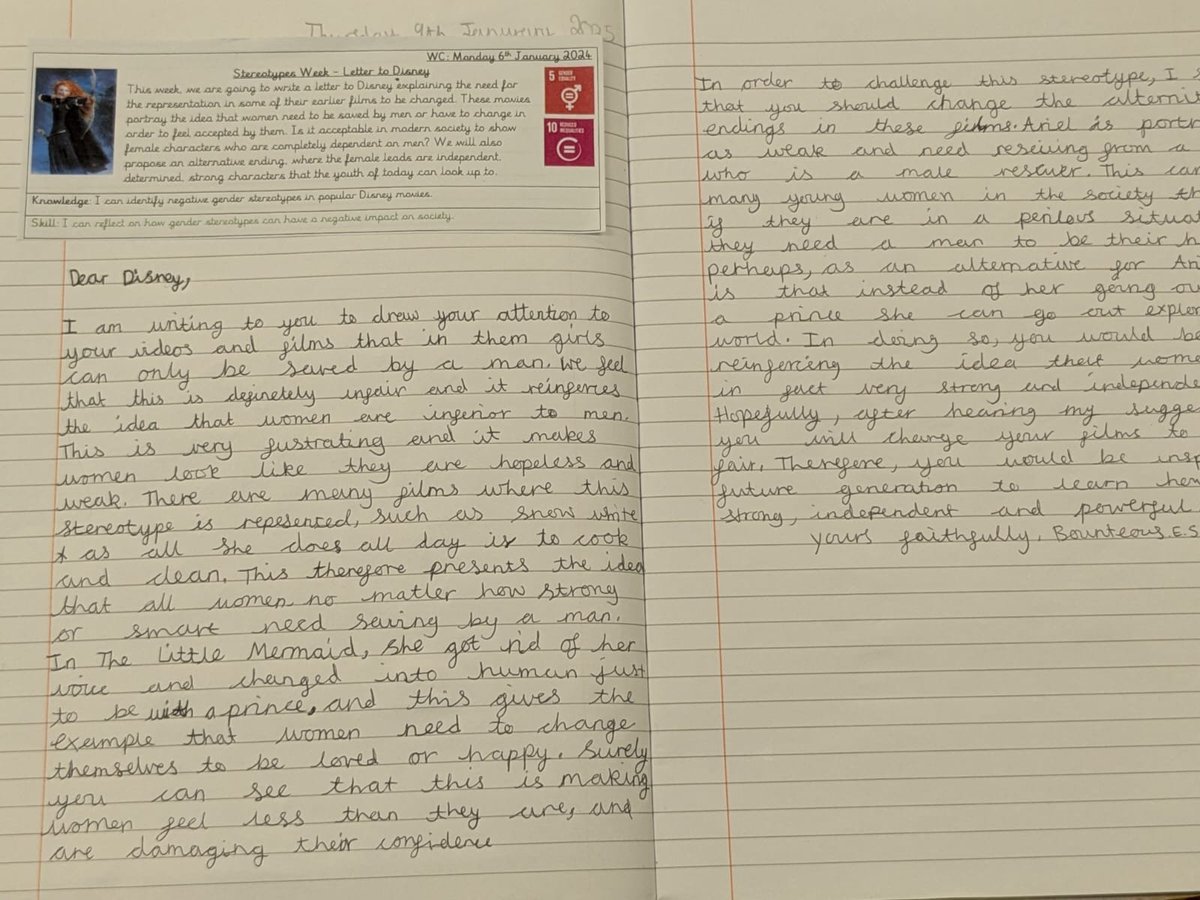 Thursday 9th January 2025
WC: Monday 6th January 2024
Stereotypes Week - Letter to Disney
This week, we are going to write a letter to Disney explaining the need for
the representation in some of their earlier films to be changed. These movies
portray the idea that women need to be saved by men or have to change in
order to feel accepted by them. Is it acceptable in modern society to show
female characters who are completely dependent on men? We will also
propose an alternative ending, where the female leads are independent,
determined, strong characters that the youth of today can look up to.
5 GENDER EQUALITY
10 REDUCED INEQUALITIES
Knowledge: I can identify negative gender stereotypes in popular Disney movies.
Skill: I can reflect on how gender stereotypes can have a negative impact on society.
Dear Disney,
I am writing to you to drew your attention to
your videos and films that in them girls
can only be saved by a man. We feel
that this is definetely unfair and it reinferces
the idea that women are inferior to men.
This is very fustrating and it makes
women look like they are hopeless and
weak. There are many films where this
stereotype is repesented, such as snow white
* as all she does all day is to cook
and clean. This therefore presents the idea
that all women no matter how strong
or smart need saving by a man.
In The Little Mermaid, she got rid of her
voice and changed into human just
to be with a prince, and this gives the
example that women need to change
themselves to be loved or happy. Surely
you can see that this is making
women feel less than they are, and
are damaging their confidence
In order to challenge this stereotype, I
that you should change the
endings in these films. Ariel is
as weak and need resciving from a
who is a male rescuer. This
many young women in the society
if they are in a perilous
they need a man to be their
perhaps, as an alternative for
is that instead of her going
a prince she can go out
world. In doing so, you would
reinforcing the idea that
in fact very strong and
Hopefully, after hearing my
you will change your films to
fair. Therefore, you would be
future generation to learn
strong, independent and powerful
yours faithfully, Bounteous.E.S